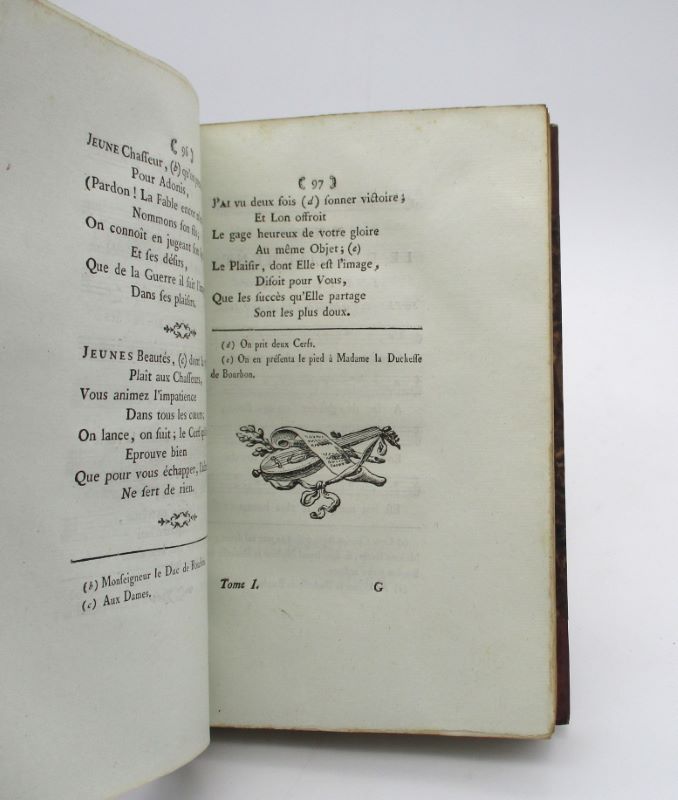 ( 96 )
JEUNE Chaſſeur, (b)
Pour Adonis,
(Pardon ! La Fable encor
Nommons ſon fils;
On connoît en jugeant
Et ſes déſirs,
Que de la Guerre il fuit
Dans ſes plaiſirs.
JEUNES Beautés, (c) dont
Plaît aux Chaſſeurs,
Vous animez l'impatience
Dans tous les cœurs;
On lance, on ſuit; le Cerf
Eprouve bien
Que pour vous échapper,
Ne ſert de rien.
(b) Monſeigneur le Duc de
(c) Aux Dames.
( 97 )
J'AI vu deux fois (d) ſonner victoire;
Et Lon offroit
Le gage heureux de votre gloire
Au même Objet; (e)
Le Plaiſir, dont Elle eſt l'image,
Diſoit pour Vous,
Que les ſuccès qu'Elle partage
Sont les plus doux.
(d) On prit deux Cerfs.
(e) On en préſenta le pied à Madame la Ducheſſe
de Bourbon.
Tome I. G